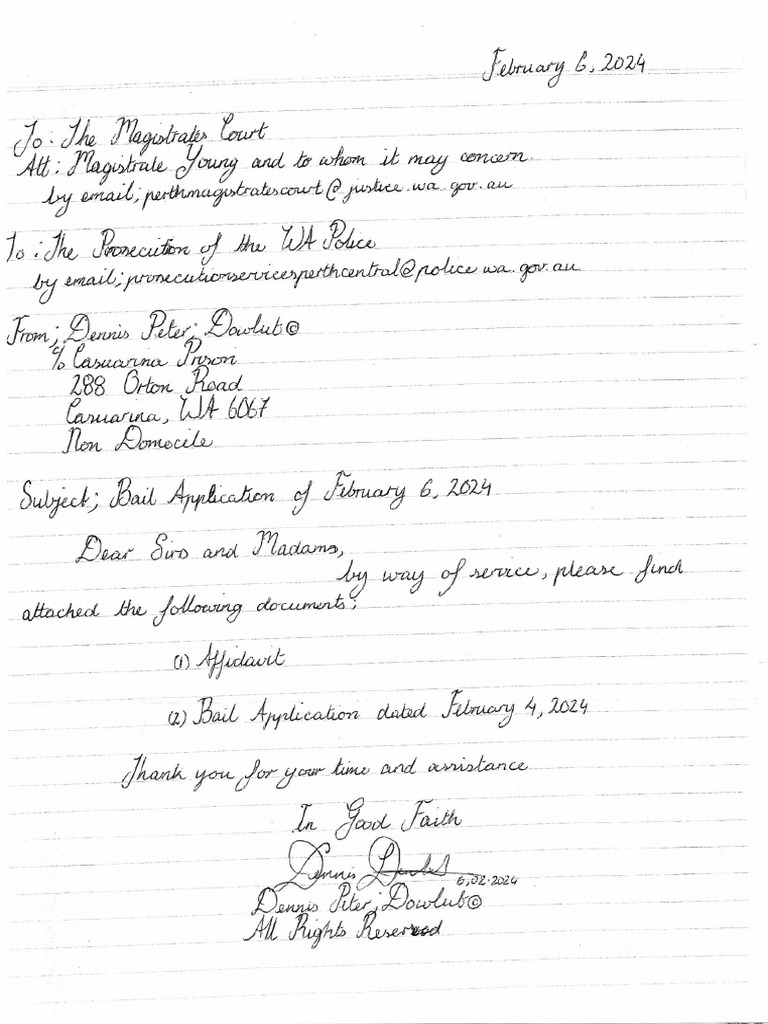 February 6, 2024
To: The Magistrates Court
Att: Magistrate Young and to whom it may concern.
by email; perthmagistratescourt@justice.wa.gov.au
To: The Prosecution of the WA Police
by email; prosecutionservicesperthcentral@police.wa.gov.au
From; Dennis Peter; Dowlut©
c/o Casuarina Prison
288 Orton Road
Casuarina, WA 6067
Non Domecile
Subject; Bail Application of February 6, 2024
Dear Sirs and Madams,
by way of service, please find
attached the following documents;
(1) Affidavit
(2) Bail Application dated February 4, 2024
Thank you for your time and assistance
In Good Faith
Dennis Dowlut
6.02.2024
Dennis Peter; Dowlut©
All Rights Reserved